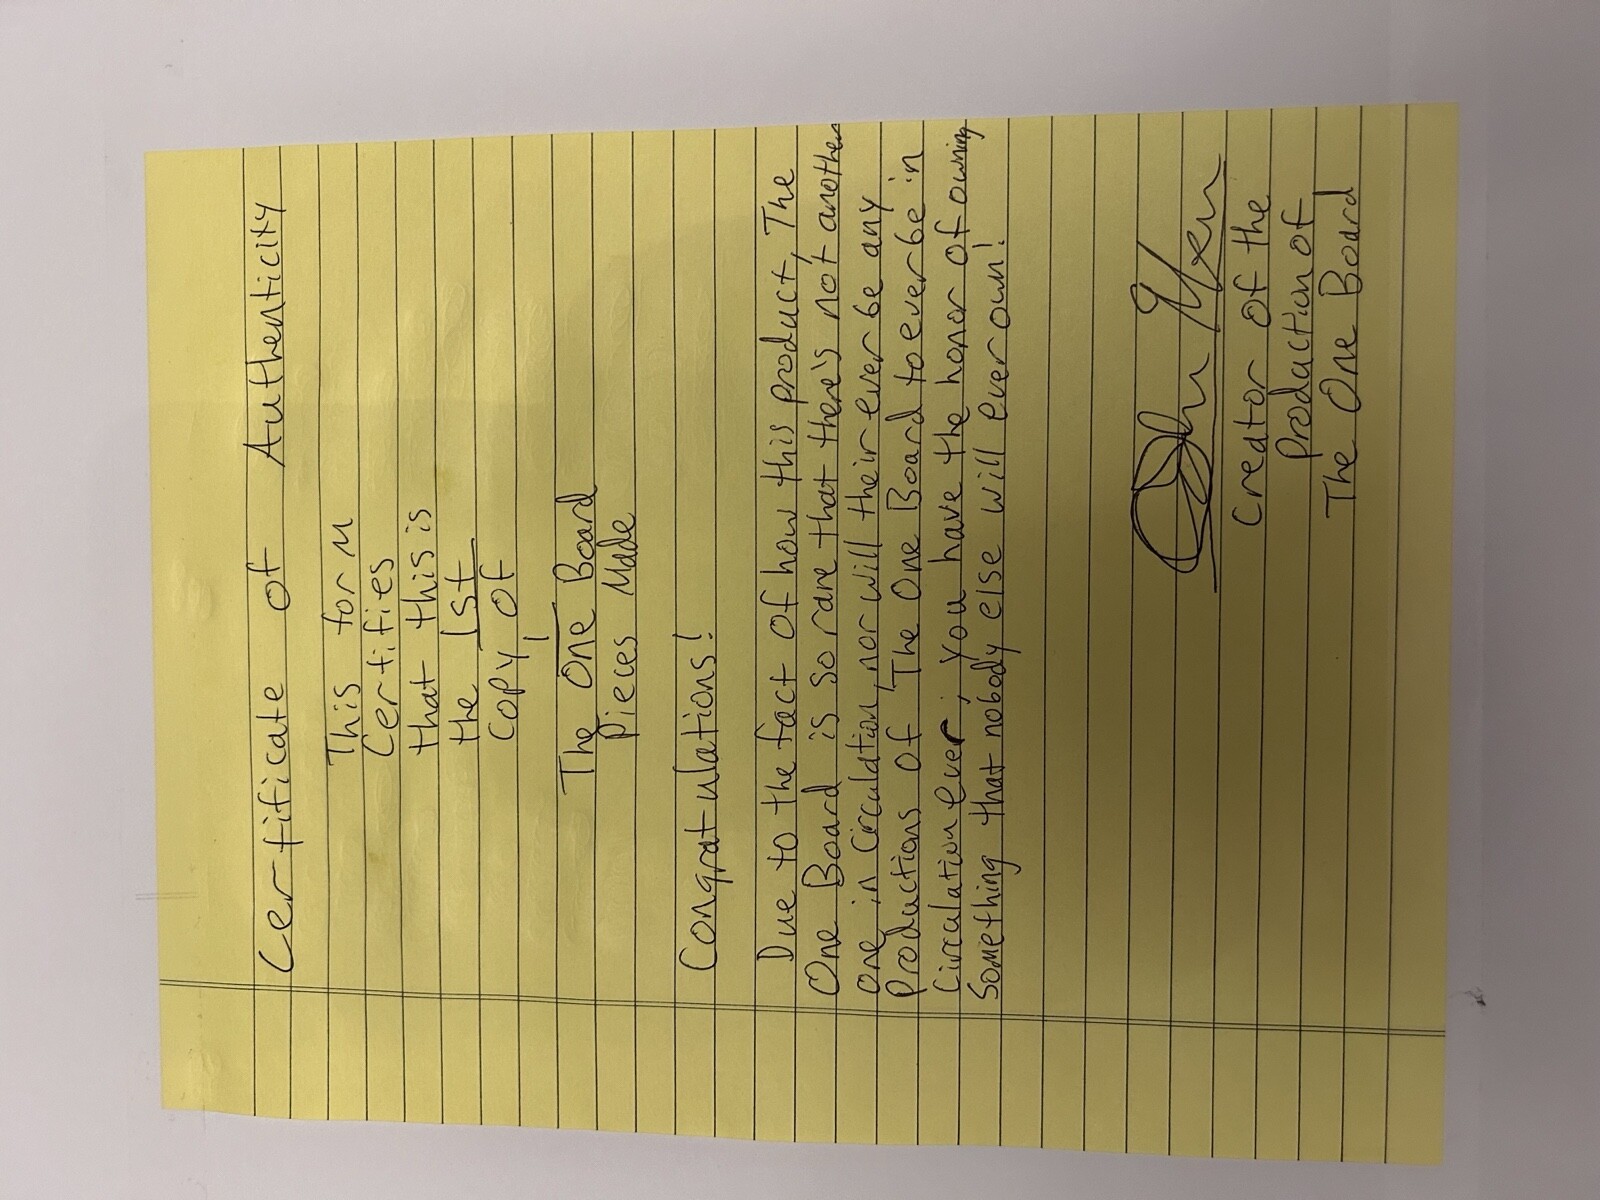 Certificate of Authenticity
This form
Certifies
that this is
the 1st
copy of
1
The One Board
Pieces Made
Congratulations!
Due to the fact of how this product, The
One Board is so rare that there's not another
one in circulation, nor will their ever be any
Productions of The One Board to ever be in
Circulation ever; you have the honor of owning
Something that nobody else will ever own!
Creator of the
Production of
The One Board